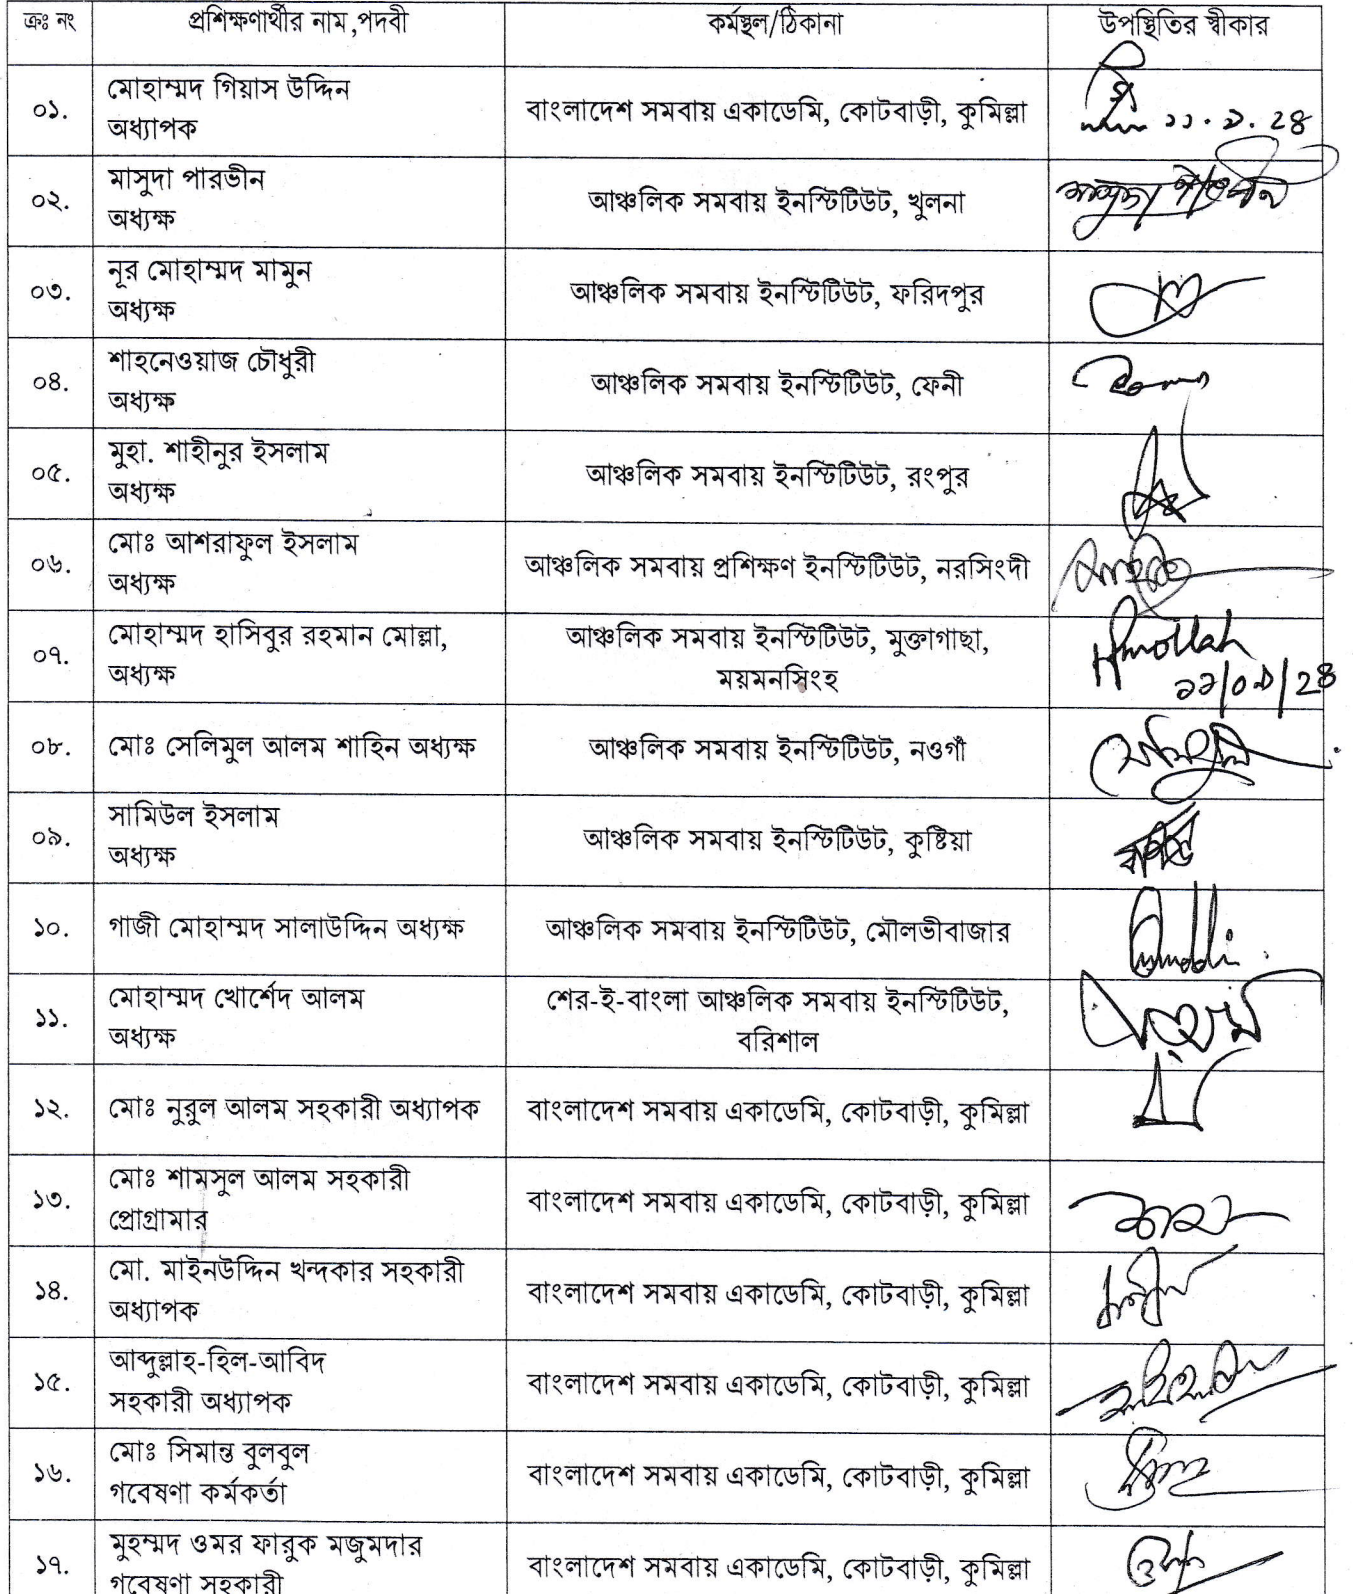 ক্রঃ নং প্রশিক্ষণার্থীর নাম,পদবী কর্মস্থল/ঠিকানা উপস্থিতির স্বীকার
০১. মোহাম্মদ গিয়াস উদ্দিন
অধ্যাপক বাংলাদেশ সমবায় একাডেমি, কোটবাড়ী, কুমিল্লা
০২. মাসুদা পারভীন
অধ্যক্ষ আঞ্চলিক সমবায় ইনস্টিটিউট, খুলনা মাসুদা পারভীন
০৩. নূর মোহাম্মদ মামুন
অধ্যক্ষ আঞ্চলিক সমবায় ইনস্টিটিউট, ফরিদপুর
০৪. শাহনেওয়াজ চৌধুরী
অধ্যক্ষ আঞ্চলিক সমবায় ইনস্টিটিউট, ফেনী
০৫. মুহা. শাহীনুর ইসলাম
অধ্যক্ষ আঞ্চলিক সমবায় ইনস্টিটিউট, রংপুর
০৬. মোঃ আশরাফুল ইসলাম
অধ্যক্ষ আঞ্চলিক সমবায় প্রশিক্ষণ ইনস্টিটিউট, নরসিংদী
০৭. মোহাম্মদ হাসিবুর রহমান মোল্লা,
অধ্যক্ষ আঞ্চলিক সমবায় ইনস্টিটিউট, মুক্তাগাছা,
ময়মনসিংহ
০৮. মোঃ সেলিমুল আলম শাহিন অধ্যক্ষ আঞ্চলিক সমবায় ইনস্টিটিউট, নওগাঁ
০৯. সামিউল ইসলাম
অধ্যক্ষ আঞ্চলিক সমবায় ইনস্টিটিউট, কুষ্টিয়া
১০. গাজী মোহাম্মদ সালাউদ্দিন অধ্যক্ষ আঞ্চলিক সমবায় ইনস্টিটিউট, মৌলভীবাজার
১১. মোহাম্মদ খোর্শেদ আলম
অধ্যক্ষ শের-ই-বাংলা আঞ্চলিক সমবায় ইনস্টিটিউট,
বরিশাল
১২. মোঃ নুরুল আলম সহকারী অধ্যাপক বাংলাদেশ সমবায় একাডেমি, কোটবাড়ী, কুমিল্লা
১৩. মোঃ শামসুল আলম সহকারী
প্রোগ্রামার বাংলাদেশ সমবায় একাডেমি, কোটবাড়ী, কুমিল্লা
১৪. মো. মাইনউদ্দিন খন্দকার সহকারী
অধ্যাপক বাংলাদেশ সমবায় একাডেমি, কোটবাড়ী, কুমিল্লা
১৫. আব্দুল্লাহ-হিল-আবিদ
সহকারী অধ্যাপক বাংলাদেশ সমবায় একাডেমি, কোটবাড়ী, কুমিল্লা
১৬. মোঃ সিমান্ত বুলবুল
গবেষণা কর্মকর্তা বাংলাদেশ সমবায় একাডেমি, কোটবাড়ী, কুমিল্লা
১৭. মুহম্মদ ওমর ফারুক মজুমদার
গবেষণা সহকারী বাংলাদেশ সমবায় একাডেমি, কোটবাড়ী, কুমিল্লা